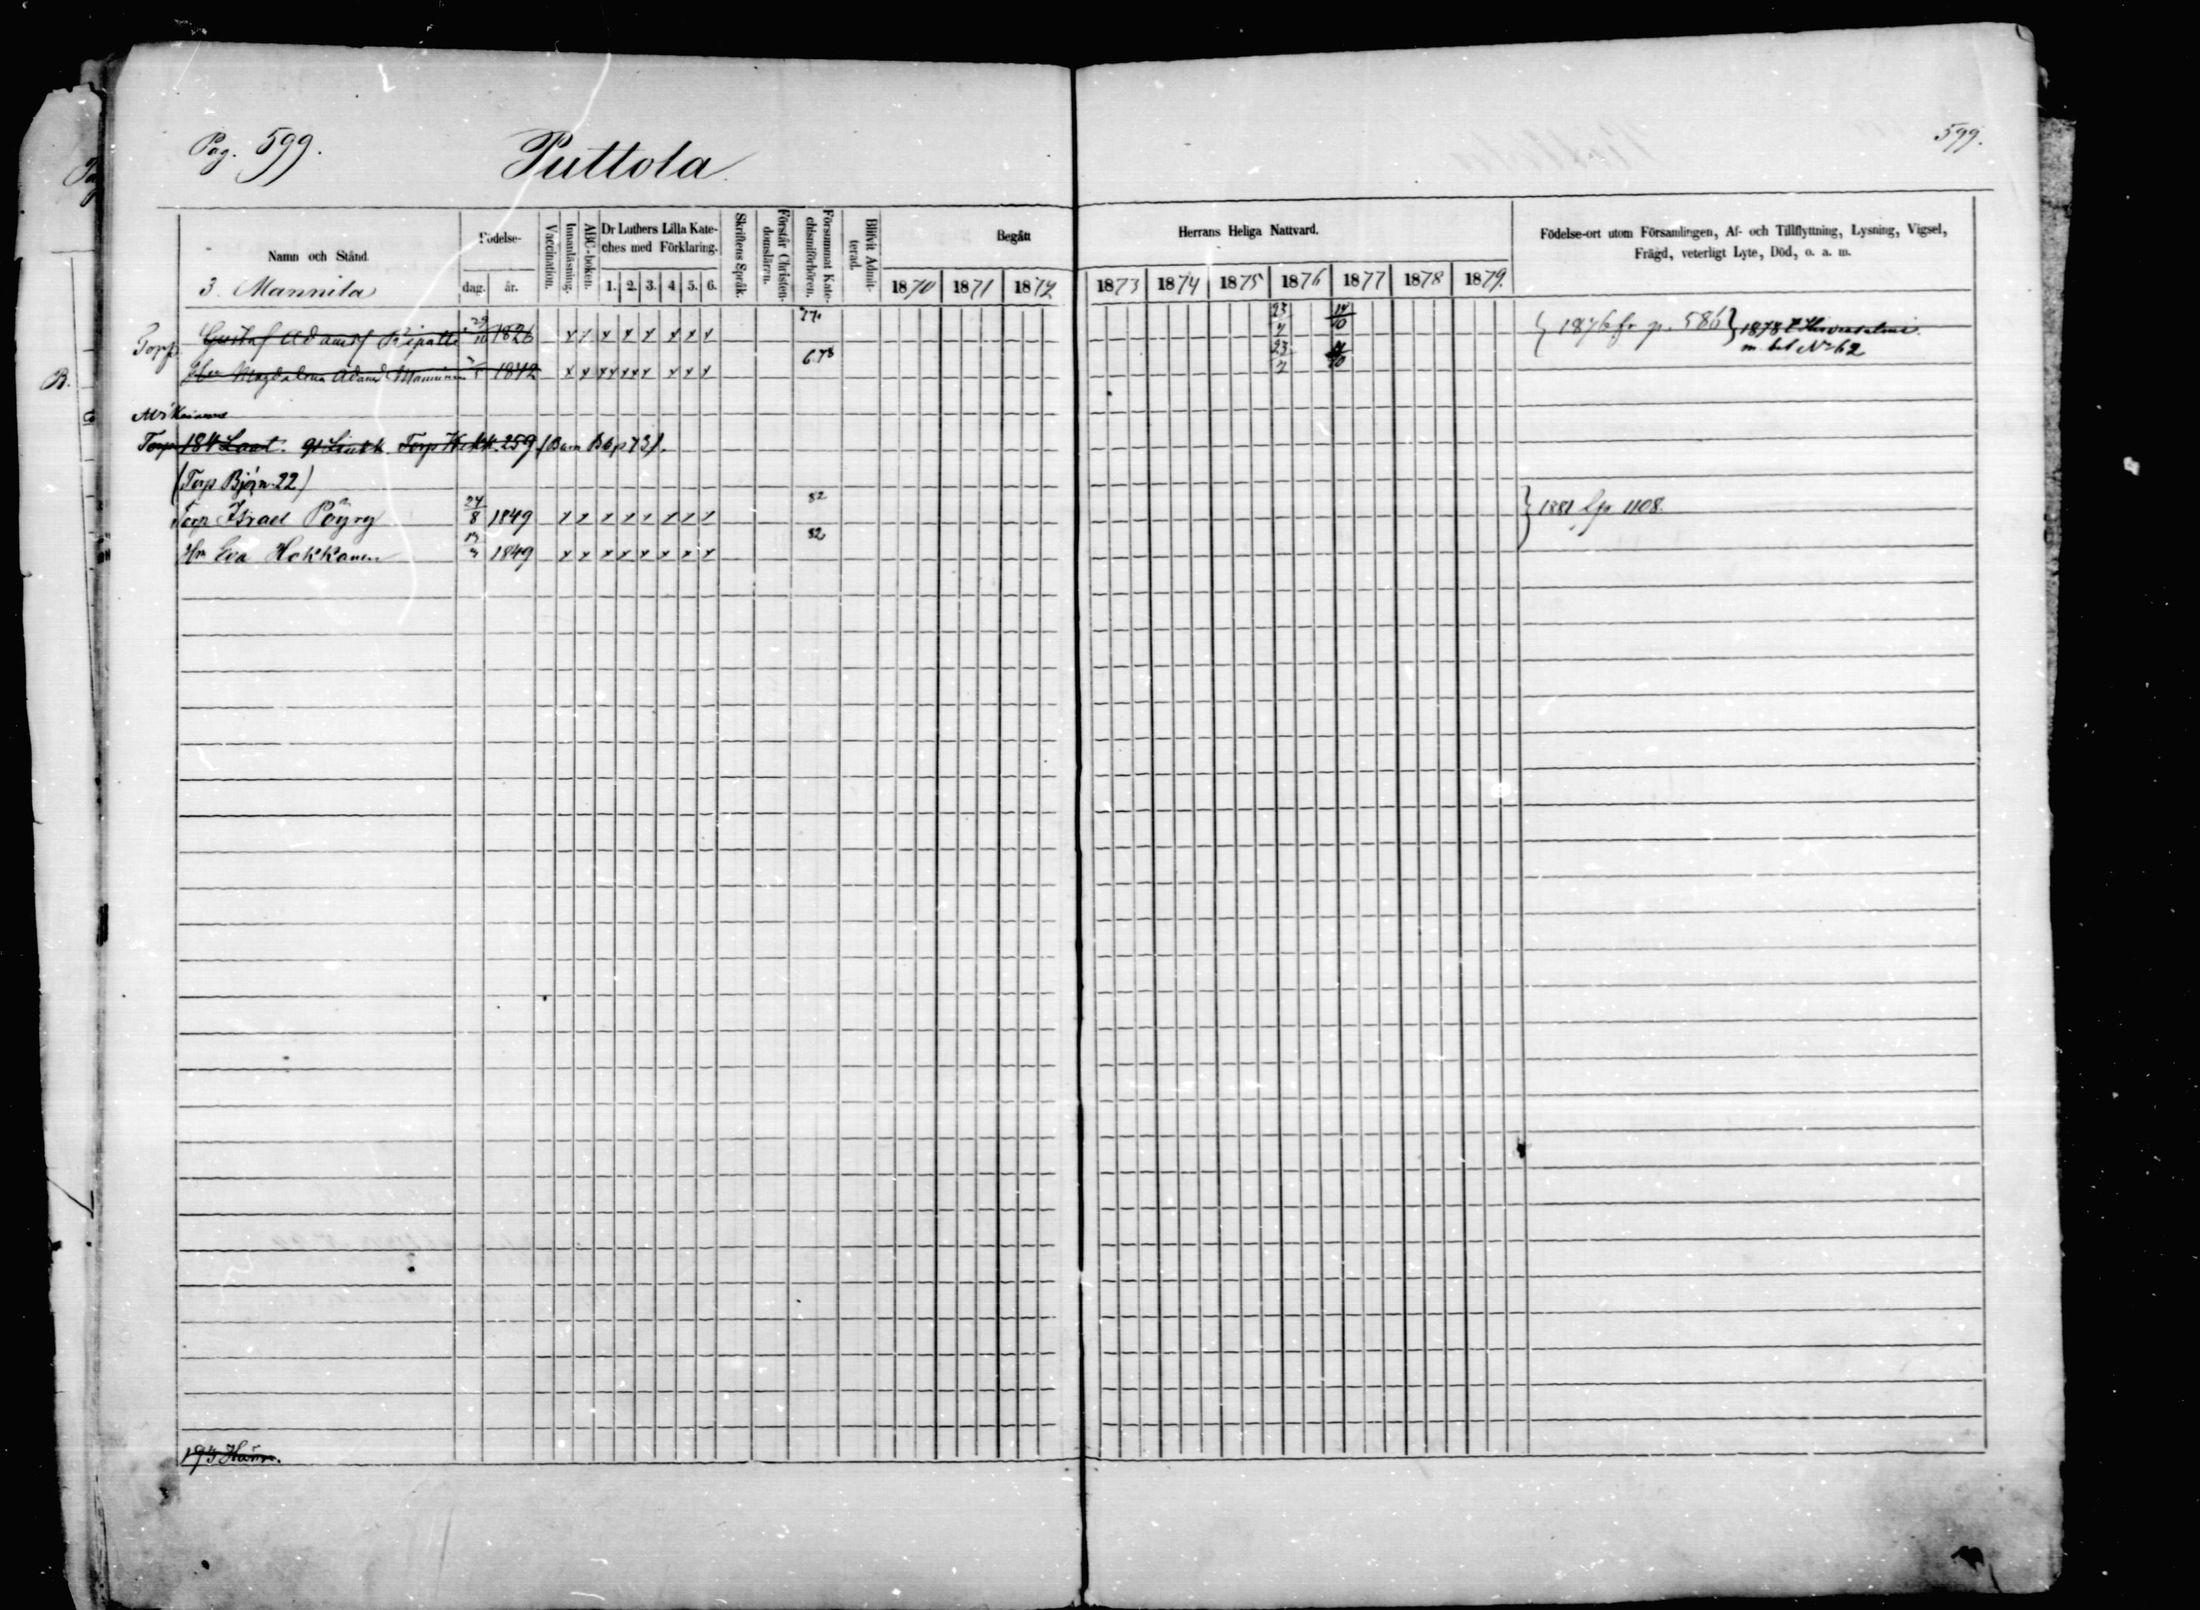 Pag. 599.
Puttola
599.
Namn och Stånd.
3. Mannila
Födelse-
dag. år.
Vaccination.
Innanläsning.
ABC-boken.
Dr Luthers Lilla Kate-
ches med Förklaring.
1. 2. 3. 4. 5. 6.
Skriftens Språk.
Förstår Christen-
domsläran.
Försummat Kate-
chismiförhören.
Blifvit Admit-
terad.
Begått
1870 1871 1872
Herrans Heliga Nattvard.
1873 1874 1875 1876 1877 1878 1879.
Födelse-ort utom Församlingen, Af- och Tillflyttning, Lysning, Vigsel,
Frägd, veterligt Lyte, Död, o. a. m.
Torp Gustaf Adamsf 29/10 1826 x x x x x x x x 77. 23/7 14/10 1876 fr p. 586
m. bet No 62
Magdalena Adamsd 1842 x x x x x x x x 6.78 23/7 14/10
Torp 184 Torp 259 (Barn Bb p 73).
(Torp Björn 22)
Torp Israel Pöyry 24/8 1849 x x x x x x x x 82 1881 fr p. 1108.
Hu Eva Hokkanen 1849 x x x x x x x x 82